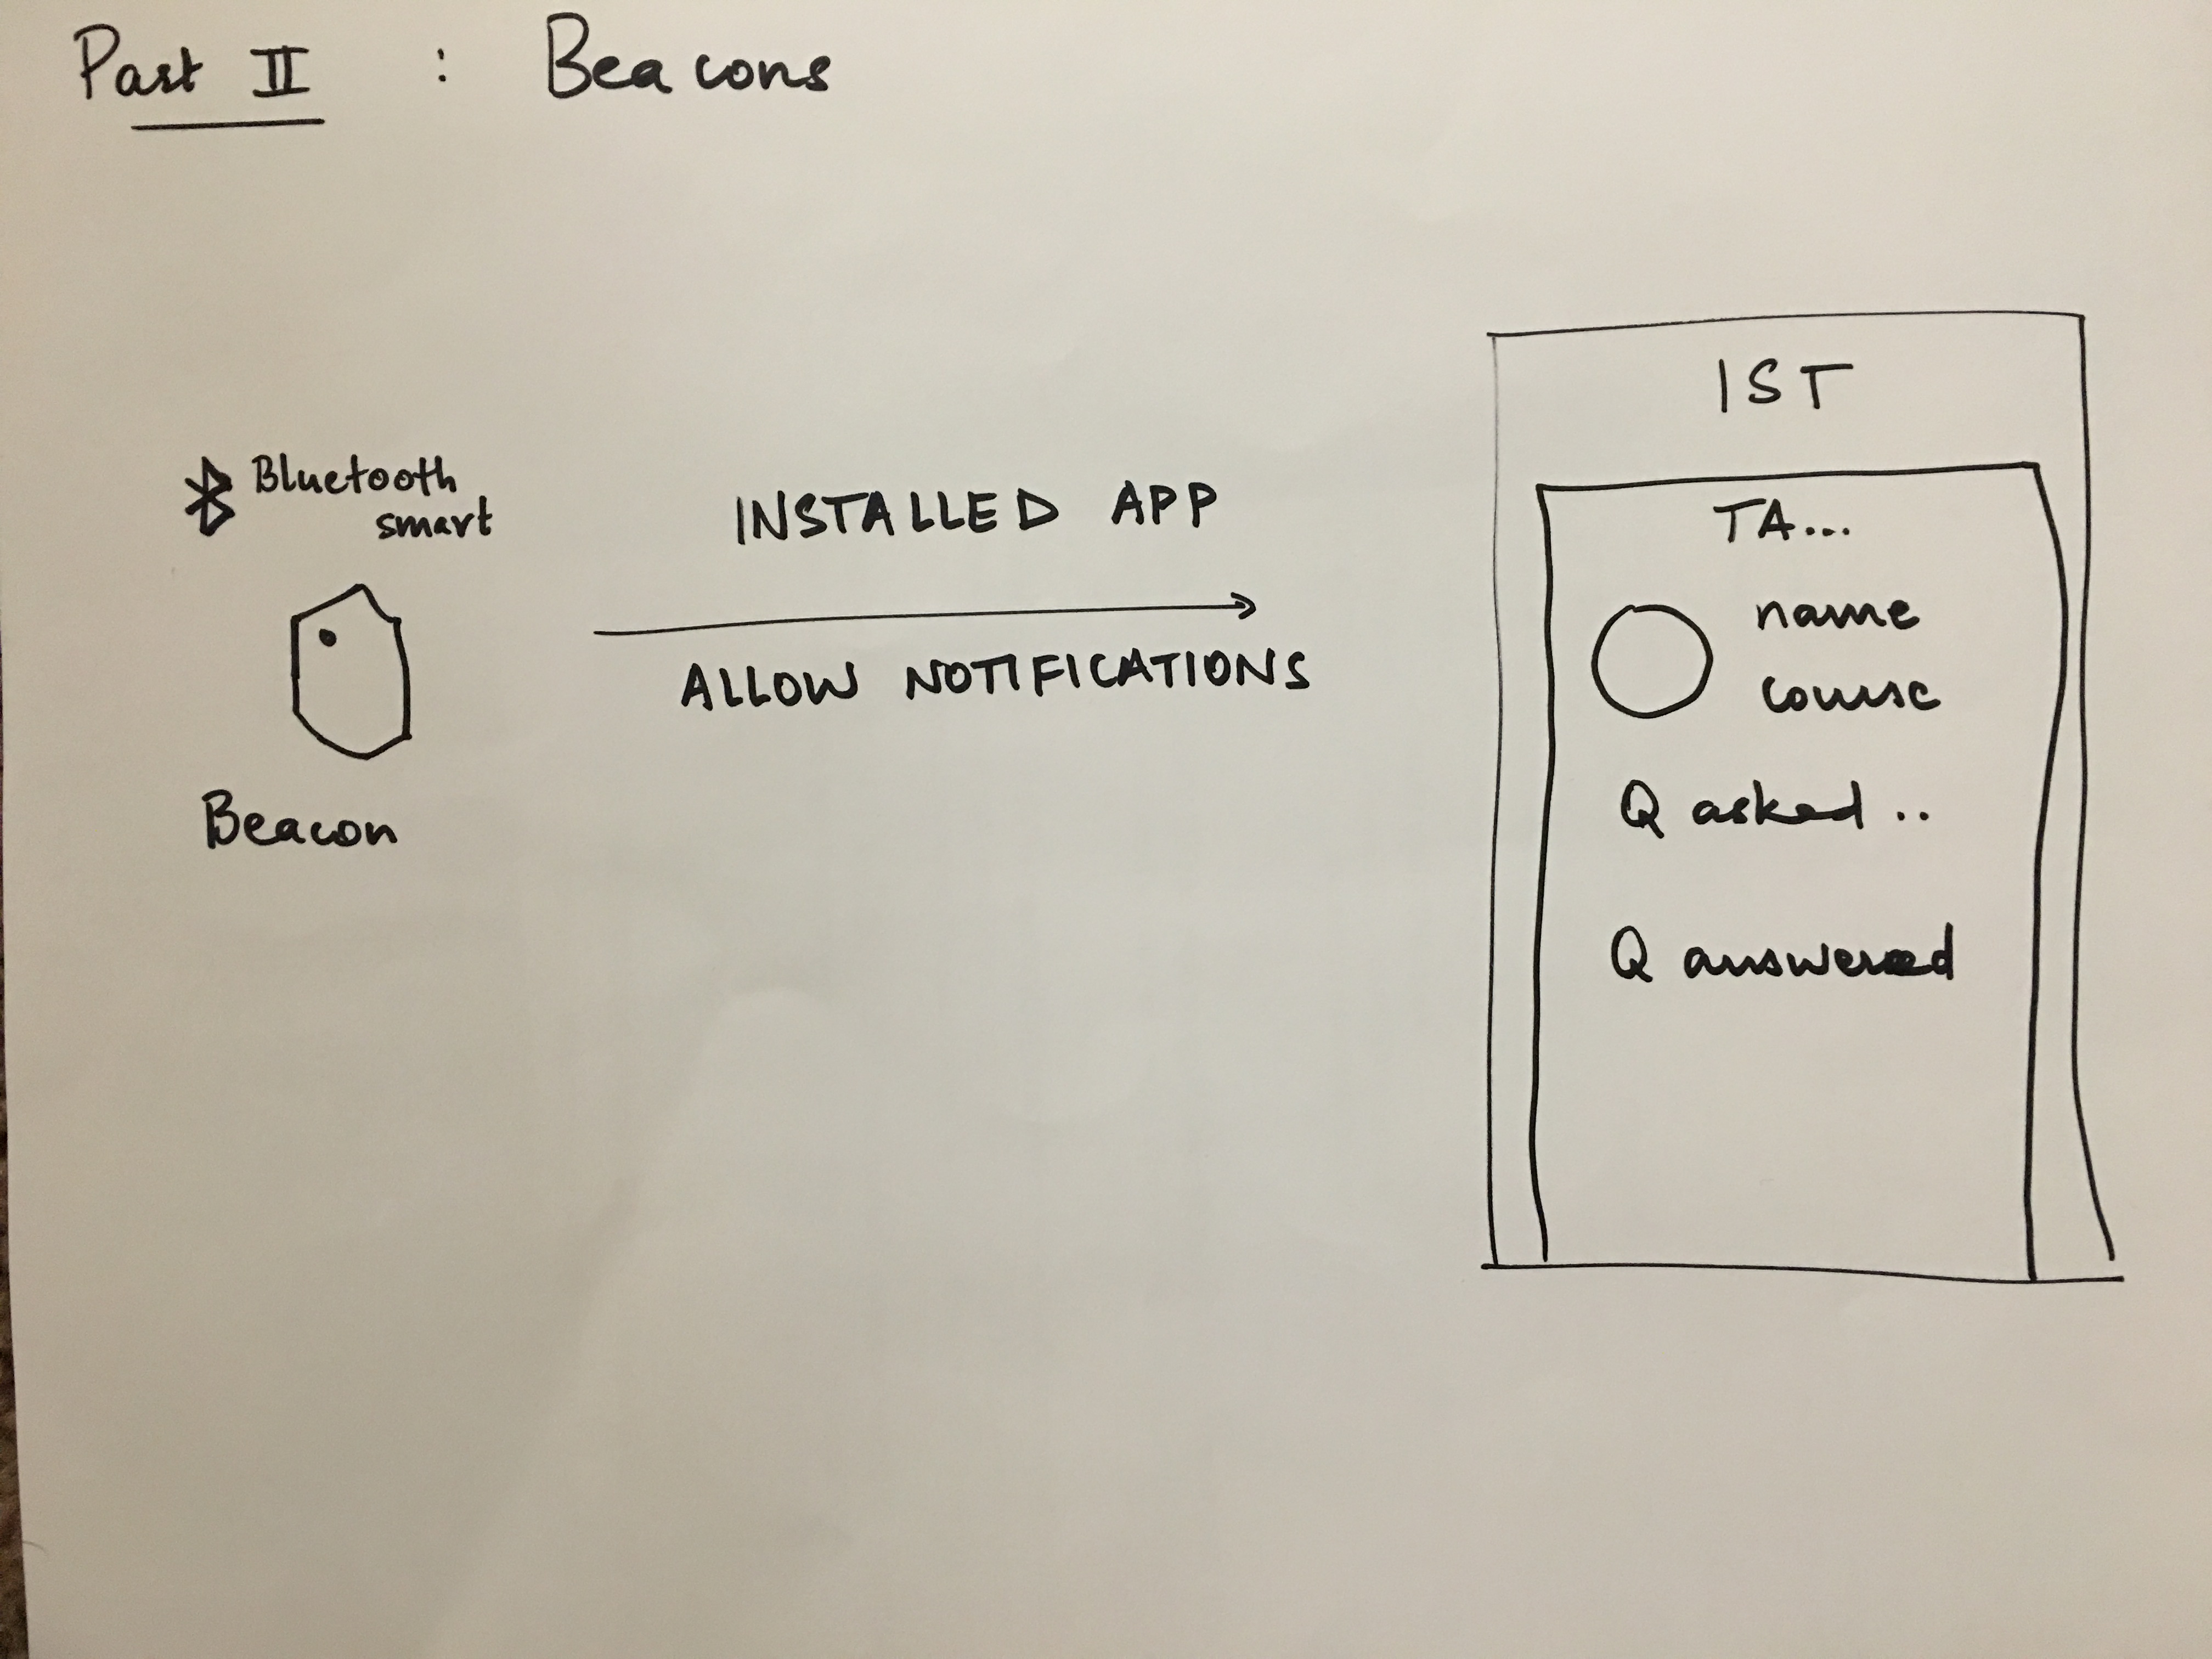 Part II : Beacons
Bluetooth
smart
Beacon
INSTALLED APP
ALLOW NOTIFICATIONS
IST
TA...
name
course
Q asked ..
Q answered